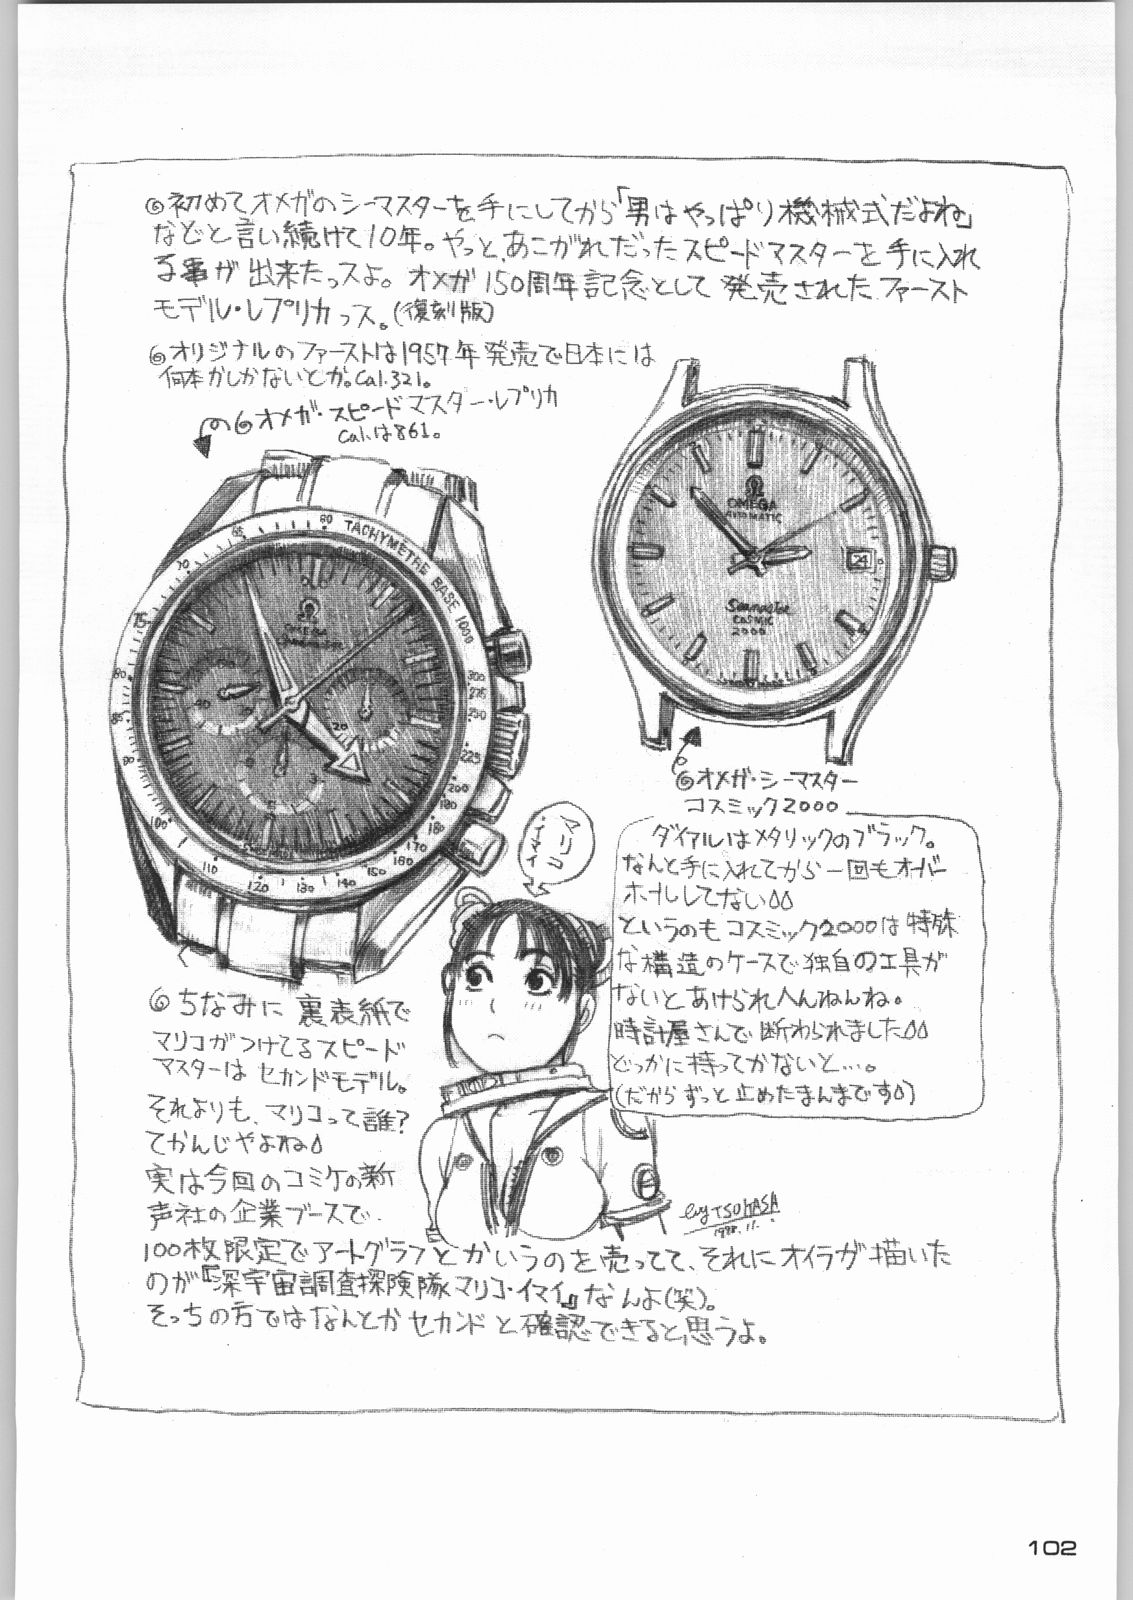 ◎初めてオメガのシーマスターを手にしてから「男はやっぱり機械式だよね」
などと言い続けて10年。やっと、あこがれだったスピードマスターを手に入れ
る事が出来たっスよ。オメガ150周年記念として発売されたファースト
モデル・レプリカっス。(復刻版)
◎オリジナルのファーストは1957年発売で日本には
何本かしかないとか。Cal.321。
◎オメガ・スピードマスター・レプリカ
Cal.は861。
TACHYMETRE BASE 1000
60
65
70
75
80
85
100
110
120
130
140
150
160
170
180
190
200
225
250
275
300
OMEGA
AUTOMATIC
24
Seamaster
COSMIC
2000
◎オメガ・シーマスター
コスミック2000
ダイアルはメタリックのブラック。
なんと手に入れてから一回もオーバー
ホールしてない
というのもコスミック2000は特殊
な構造のケースで独自の工具が
ないとあけられへんねんね。
時計屋さんで断わられました
どっかに持ってかないと…。
(だからずっと止めたまんまです)
マリコ
・イマイ
◎ちなみに裏表紙で
マリコがつけてるスピード
マスターはセカンドモデル。
それよりも、マリコって誰?
てかんじやよね
実は今回のコミケの新
声社の企業ブースで
100枚限定でアートグラフとかいうのを売ってて、それにオイラが描いた
のが『深宇宙調査探険隊マリコ・イマイ』なんよ(笑)。
そっちの方ではなんとかセカンドと確認できると思うよ。
by TSUKASA
1998.11.
102